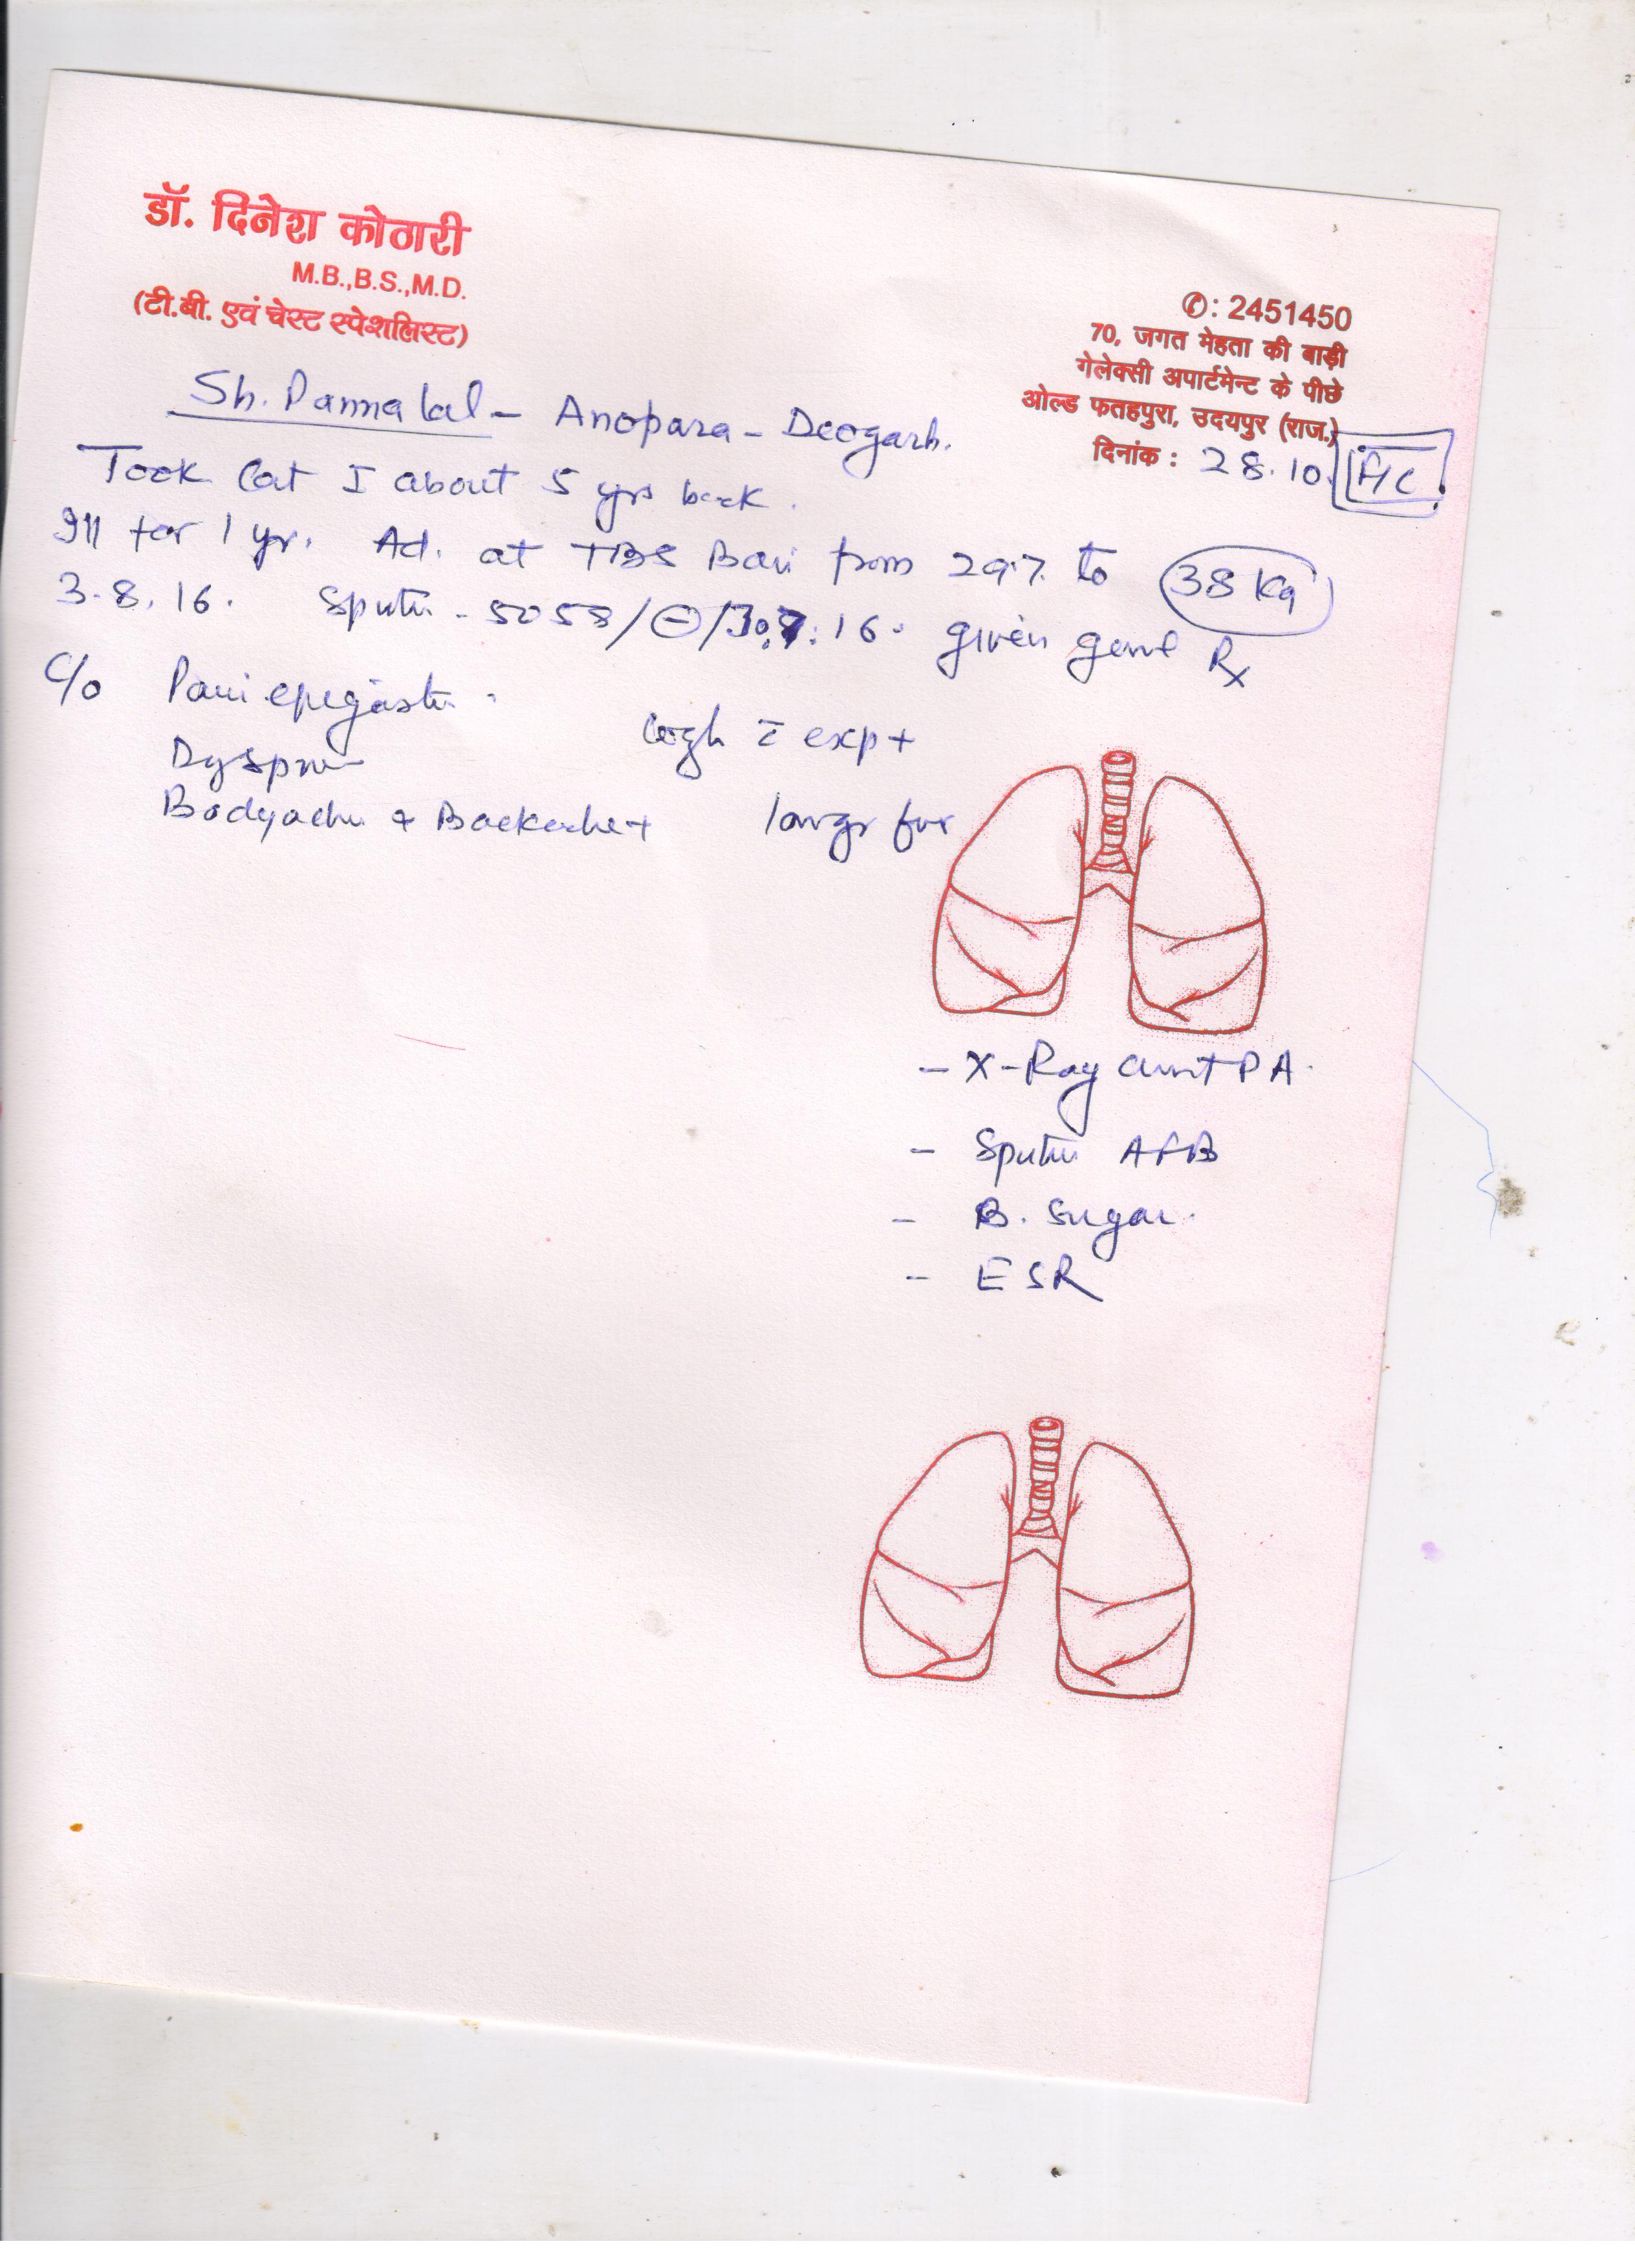 डॉ. दिनेश कोठारी
M.B.,B.S.,M.D.
(टी.बी. एवं चेस्ट स्पेशलिस्ट)
✆: 2451450
70, जगत मेहता की बाड़ी
गेलेक्सी अपार्टमेन्ट के पीछे
ओल्ड फतहपुरा, उदयपुर (राज.)
दिनांक : 28.10.
Sh. Pannalal - Anopara - Deogarh.
Took Cat I about 5 yrs back.
Ill for 1 yr. Ad. at TBS Bari from 29.7. to
38 Kg
3.8.16. Sputum - 5058/⊖/30.7.16. given genl Rx
C/o Pain epigastr.
Cough c̄ exp+
Dyspn
Bodyache + Backache+
longr fvr
- X-Ray Chest PA.
- Sputum AFB
- B. Sugar.
- ESR